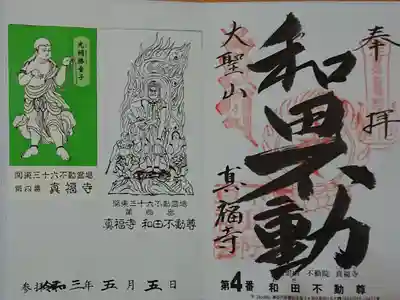 奉拝
和田不動
大聖山
真福寺
第4番 和田不動尊
光網勝童子
関東三十六不動霊場
第四番 真福寺
関東三十六不動霊場
第四番
真福寺 和田不動尊
参拝 令和三年五月五日